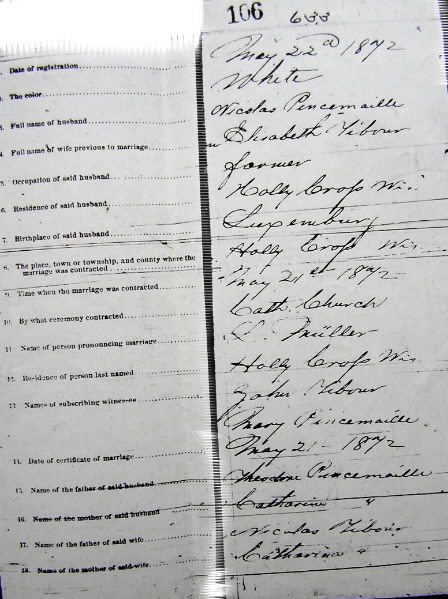 106 633
1. Date of registration May 22d 1872
2. The color White
3. Full name of husband Nicolas Pincemaille
4. Full name of wife previous to marriage Elisabeth Tibour
5. Occupation of said husband farmer
6. Residence of said husband Holly Cross Wis.
7. Birthplace of said husband Luxemburg
8. The place, town or township, and county where the
marriage was contracted Holly Cross Wis.
9. Time when the marriage was contracted May 21st 1872
10. By what ceremony contracted Cath. Church
11. Name of person pronouncing marriage Müller
12. Residence of person last named Holly Cross Wis
13. Names of subscribing witnesses John Tibour
Mary Pincemaille
14. Date of certificate of marriage May 21 - 1872
15. Name of the father of said husband Theodore Pincemaille
16. Name of the mother of said husband Catharina "
17. Name of the father of said wife Nicolas Tibour
18. Name of the mother of said wife Catharina "